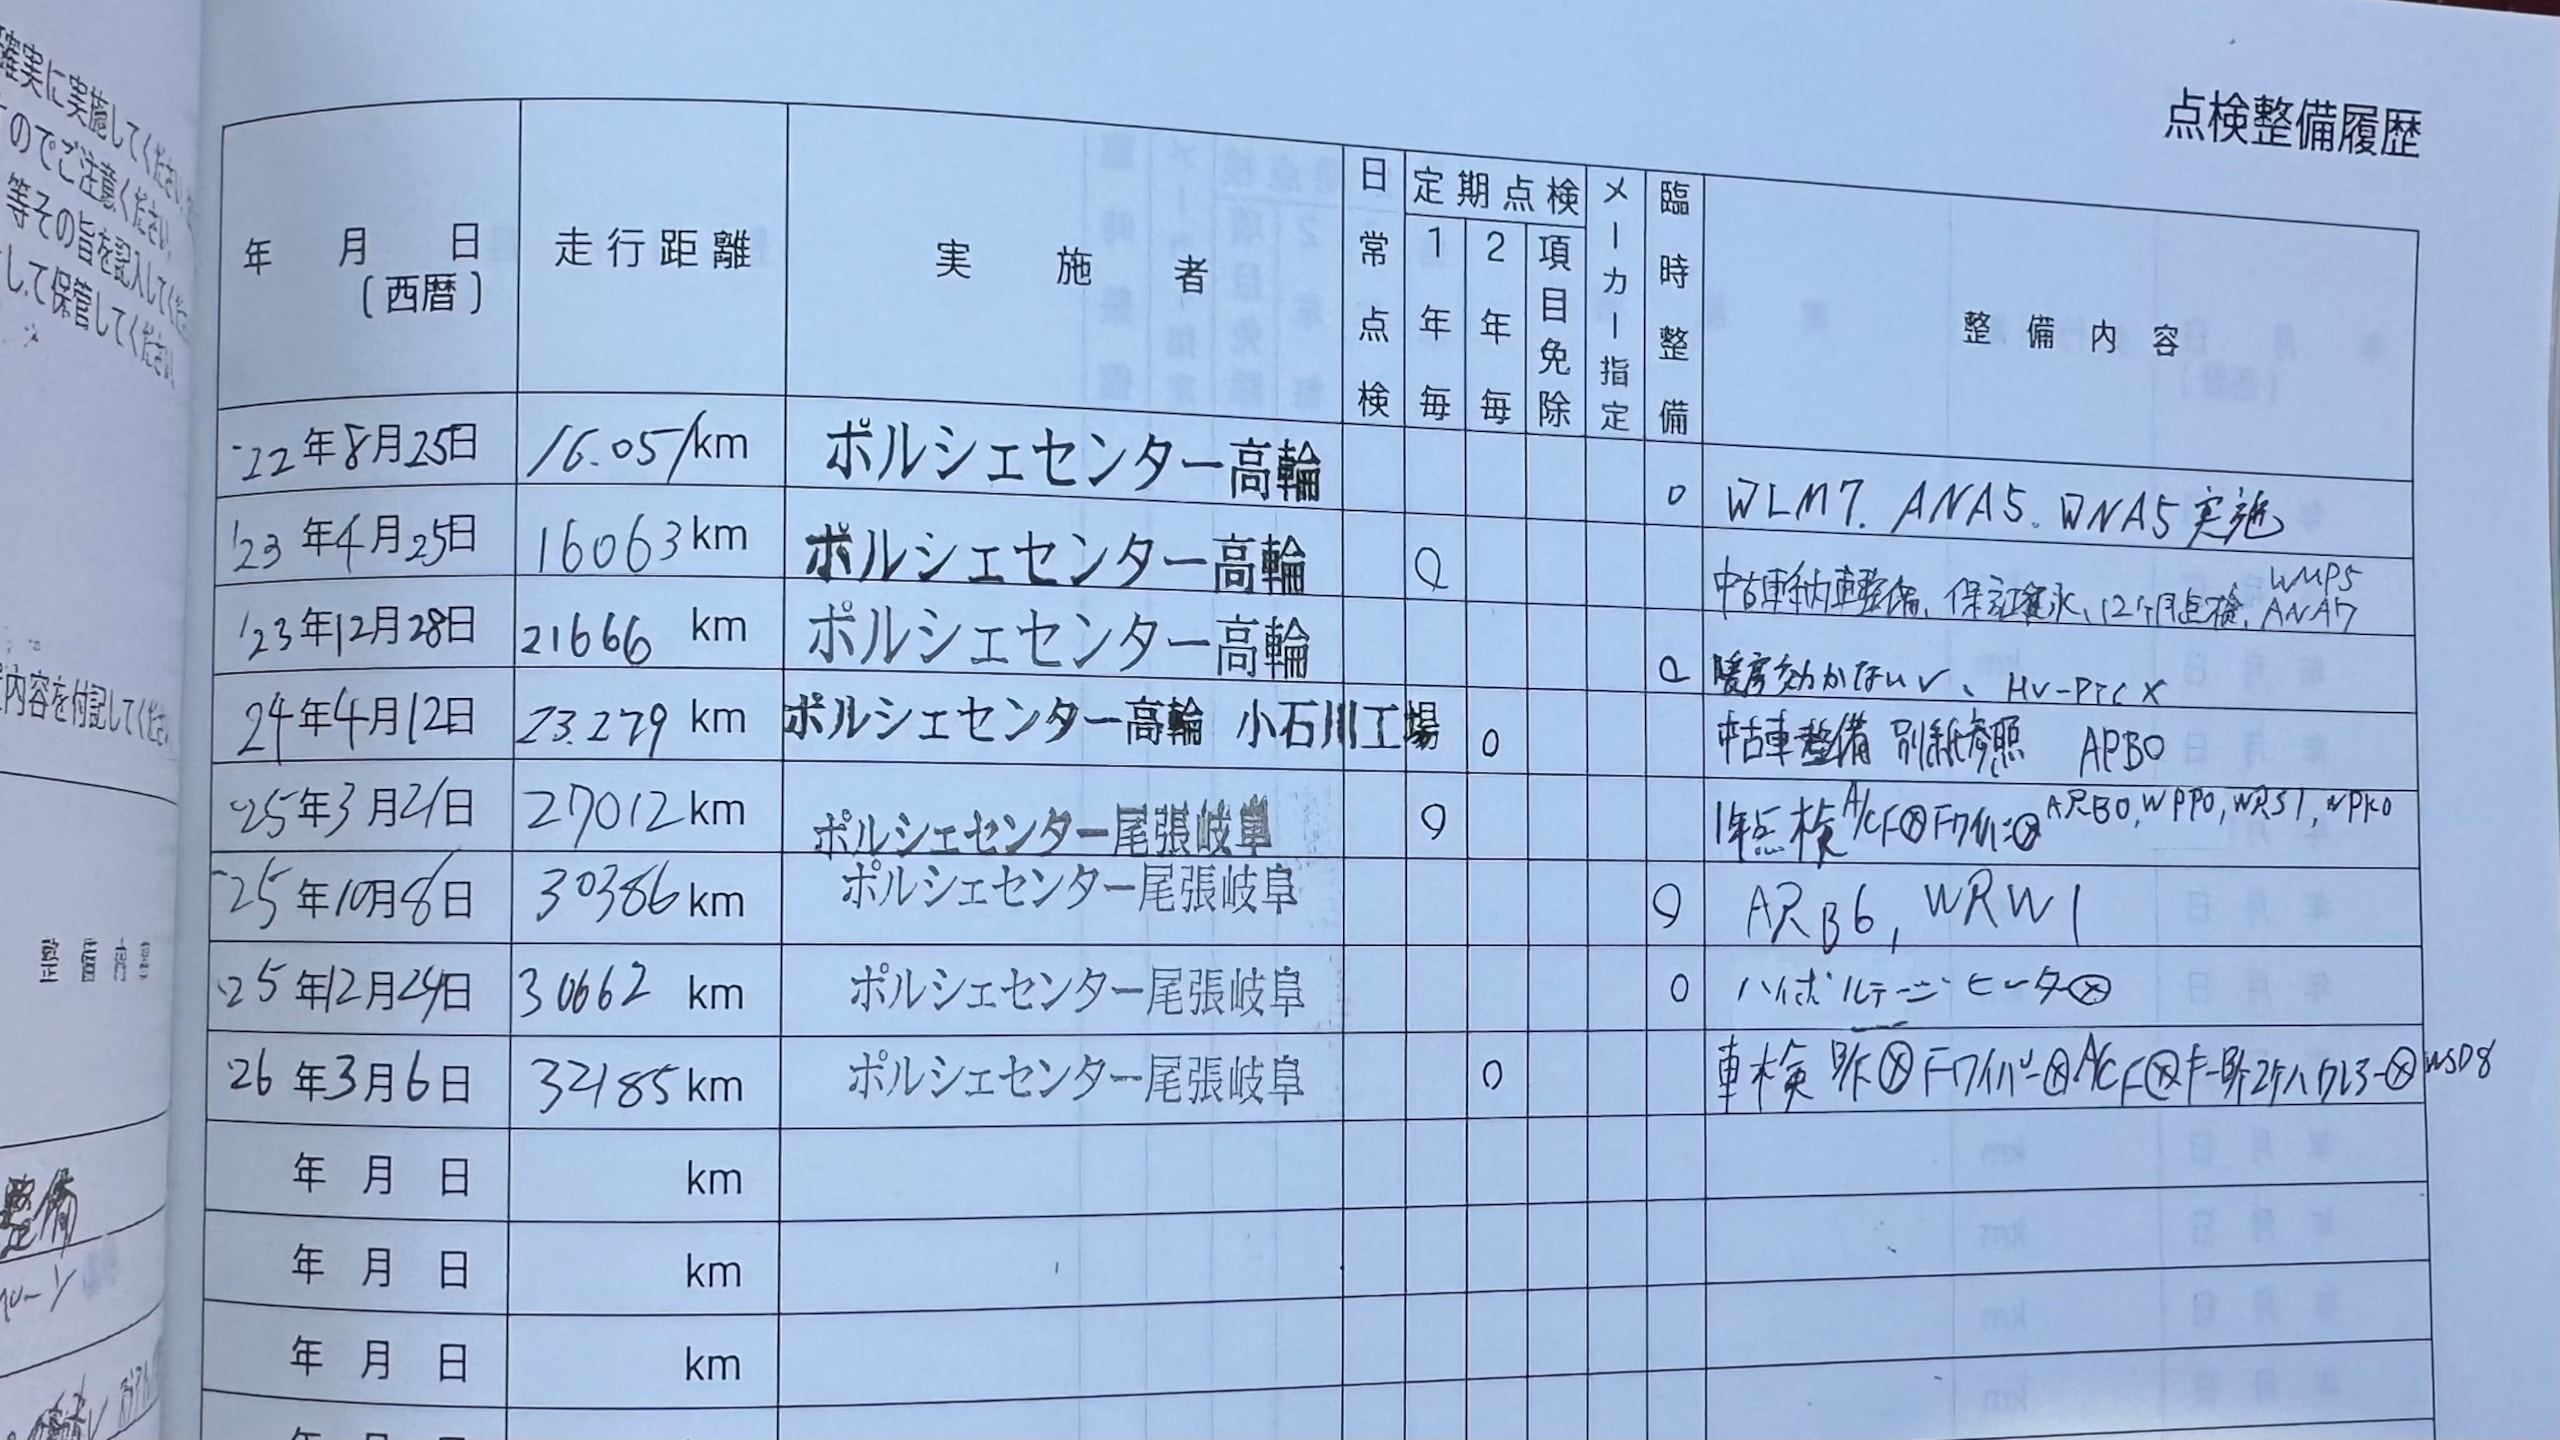 確実に実施してください
のでご注意ください
等その旨を記入してくだ
して保管してください
内容を付記してくださ
整備内容
整備
点検整備履歴
年 月 日 (西暦) 走行距離 実施者 日常点検 定期点検 1年毎 2年毎 項目免除 メーカー指定 臨時整備 整備内容
'22年8月25日 16.051km ポルシェセンター高輪 ○ WLM7. ANA5. WNA5実施
'23年4月25日 16063km ポルシェセンター高輪 ○ 中古車納車整備、保証継承、12ヶ月点検、WMP5 ANA7
'23年12月28日 21666km ポルシェセンター高輪 ○ 暖房効かない、HV-PTC X
24年4月12日 23.279km ポルシェセンター高輪 小石川工場 ○ 中古車整備 別紙参照 APB0
'25年3月21日 27012km ポルシェセンター尾張岐阜 ○ 1年点検 A/CF⊗ Fワイパー⊗ ARB0, WPP0, WRS1, WPK0
'25年10月8日 30386km ポルシェセンター尾張岐阜 ○ ARB6, WRW1
'25年12月24日 30662km ポルシェセンター尾張岐阜 ○ ハイボルテージヒーター⊗
'26年3月6日 32185km ポルシェセンター尾張岐阜 ○ 車検 B/F⊗ Fワイパー⊗ A/CF⊗ WSD8
年 月 日 km
年 月 日 km
年 月 日 km
年 月 日 km